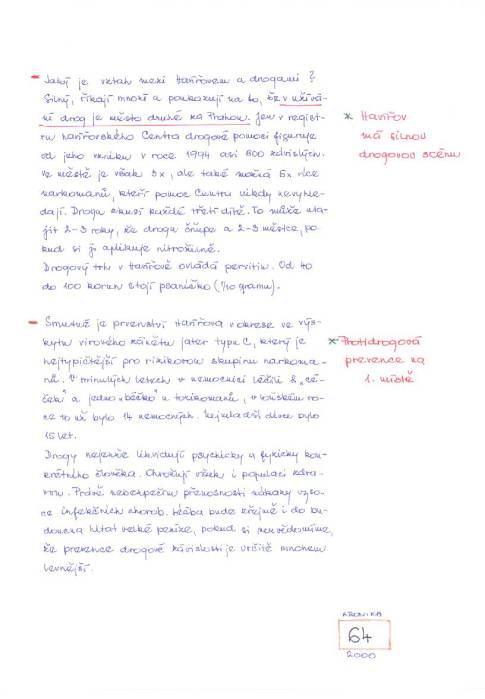 – Jaký je vztah mezi Havířovem a drogami?
Silný, říkají mnozí a poukazují na to, že v užívá-
ní drog je město druhé za Prahou. Jen v regist-
ru havířovského Centra drogové pomoci figuruje
od jeho vzniku v roce 1994 asi 600 závislých.
Ve městě je však 3x, ale také možná 5x více
narkomanů, kteří pomoc Centra nikdy nevyhle-
dají. Drogu zkusí každé třetí dítě. To může uta-
jit 2-3 roky, že drogu čňupe a 2-3 měsíce, po-
kud si ji aplikuje nitrožilně.
Drogový trh v Havířově ovládá pervitin. Od 70
do 100 korun stojí psaníčko (1/10 gramu).
* Havířov
má silnou
drogovou scénu
– Smutné je prvenství Havířova v okrese ve výs-
kytu virového zánětu jater typu C, který je
nejtypičtější pro rizikovou skupinu narkoma-
nů. V minulých letech v nemocnici léčili 8 „cé-
ček" a jedno „béčko" u toxikomanů, v loňském ro-
ce to už bylo 14 nemocných. Nejmladší dívce bylo
15 let.
Drogy nejenže likvidují psychicky a fyzicky kon-
krétního člověka. Ohrožují však i populaci zdra-
vou. Právě nebezpečím přenosnosti nákazy vyso-
ce infekčních chorob. Léčba bude zřejmě i do bu-
doucna hltat velké peníze, pokud si neuvědomíme,
že prevence drogové závislosti je určitě mnohem
levnější.
* Protidrogová
prevence na
1. místě
KRONIKA
64
2000